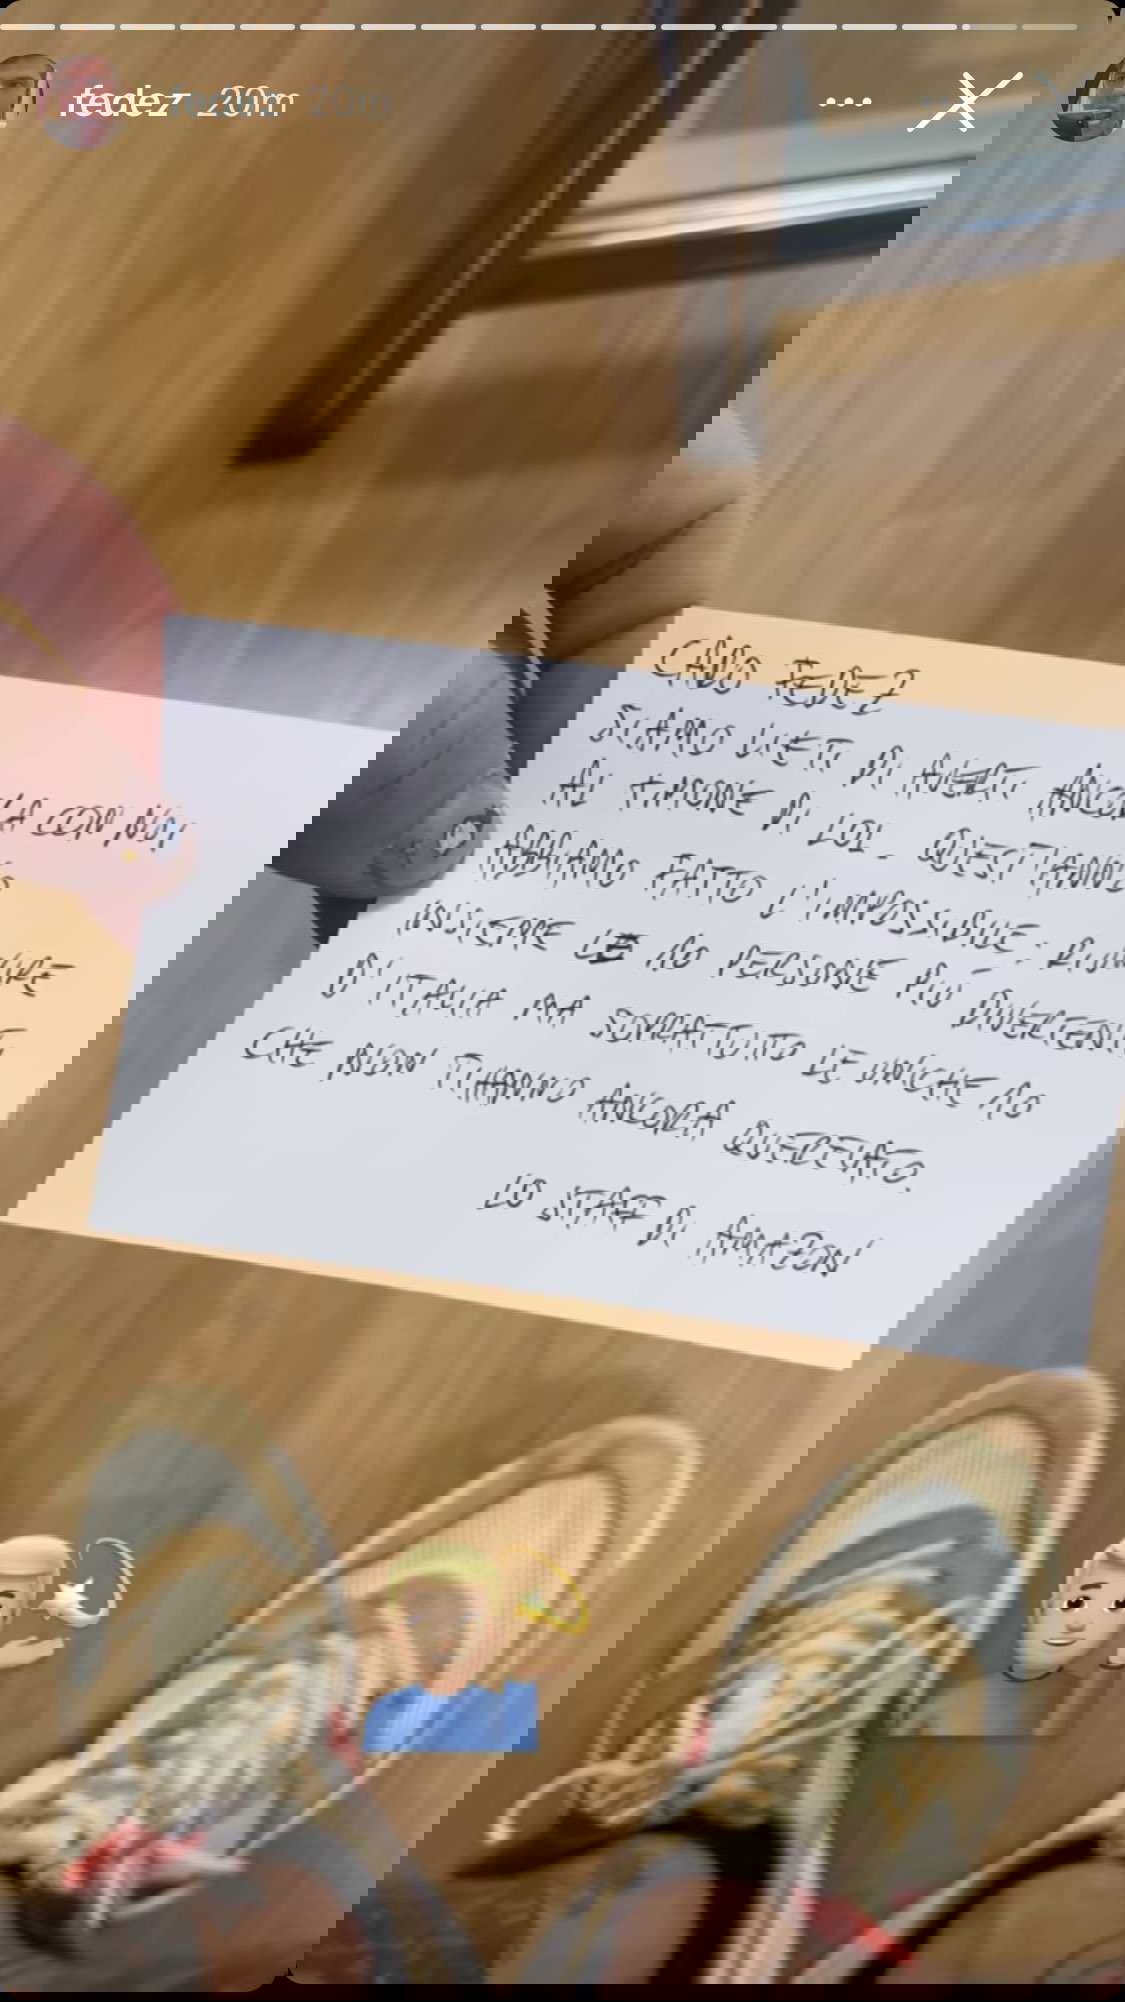 fedez 20m
CARO FEDEZ
SIAMO LIETI DI AVERTI ANCORA CON NOI
AL TIMONE DI LOL. QUEST'ANNO
ABBIAMO FATTO L'IMPOSSIBILE: RIUNIRE
INSIEME LE 10 PERSONE PIÙ DIVERTENTI
D'ITALIA MA SOPRATTUTTO LE UNICHE 10
CHE NON T'HANNO ANCORA QUERELATO.
LO STAFF DI AMAZON